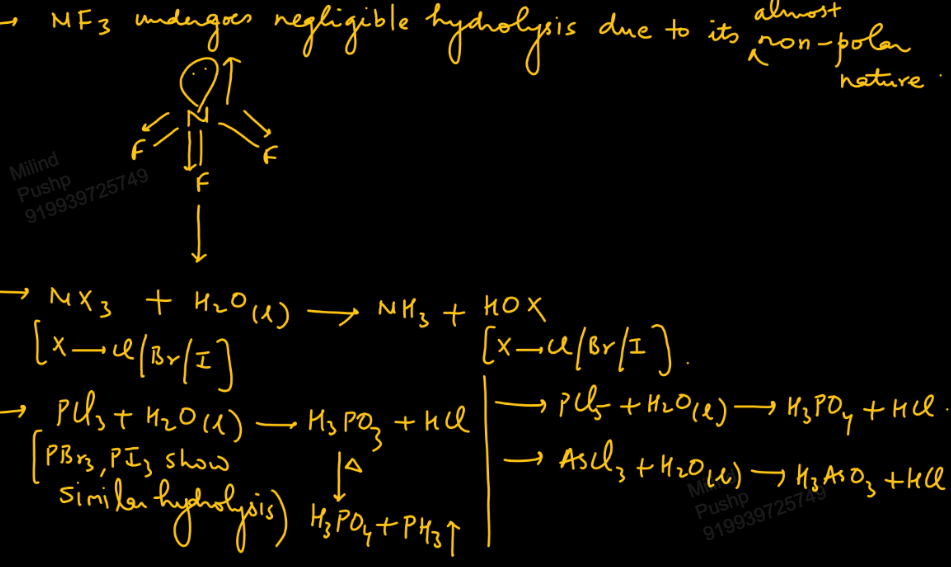 → NF3 undergoes negligible hydrolysis due to its almost non-polar nature.
N
F F
F
Milind
Pushp
919939725749
→ NX3 + H2O(l) → NH3 + HOX
[X → Cl/Br/I] [X → Cl/Br/I].
→ PCl3 + H2O(l) → H3PO3 + HCl
[PBr3, PI3 show
similar hydrolysis)
Δ
H3PO4 + PH3↑
→ PCl5 + H2O(l) → H3PO4 + HCl.
→ AsCl3 + H2O(l) → H3AsO3 + HCl
Milind
Pushp
919939725749